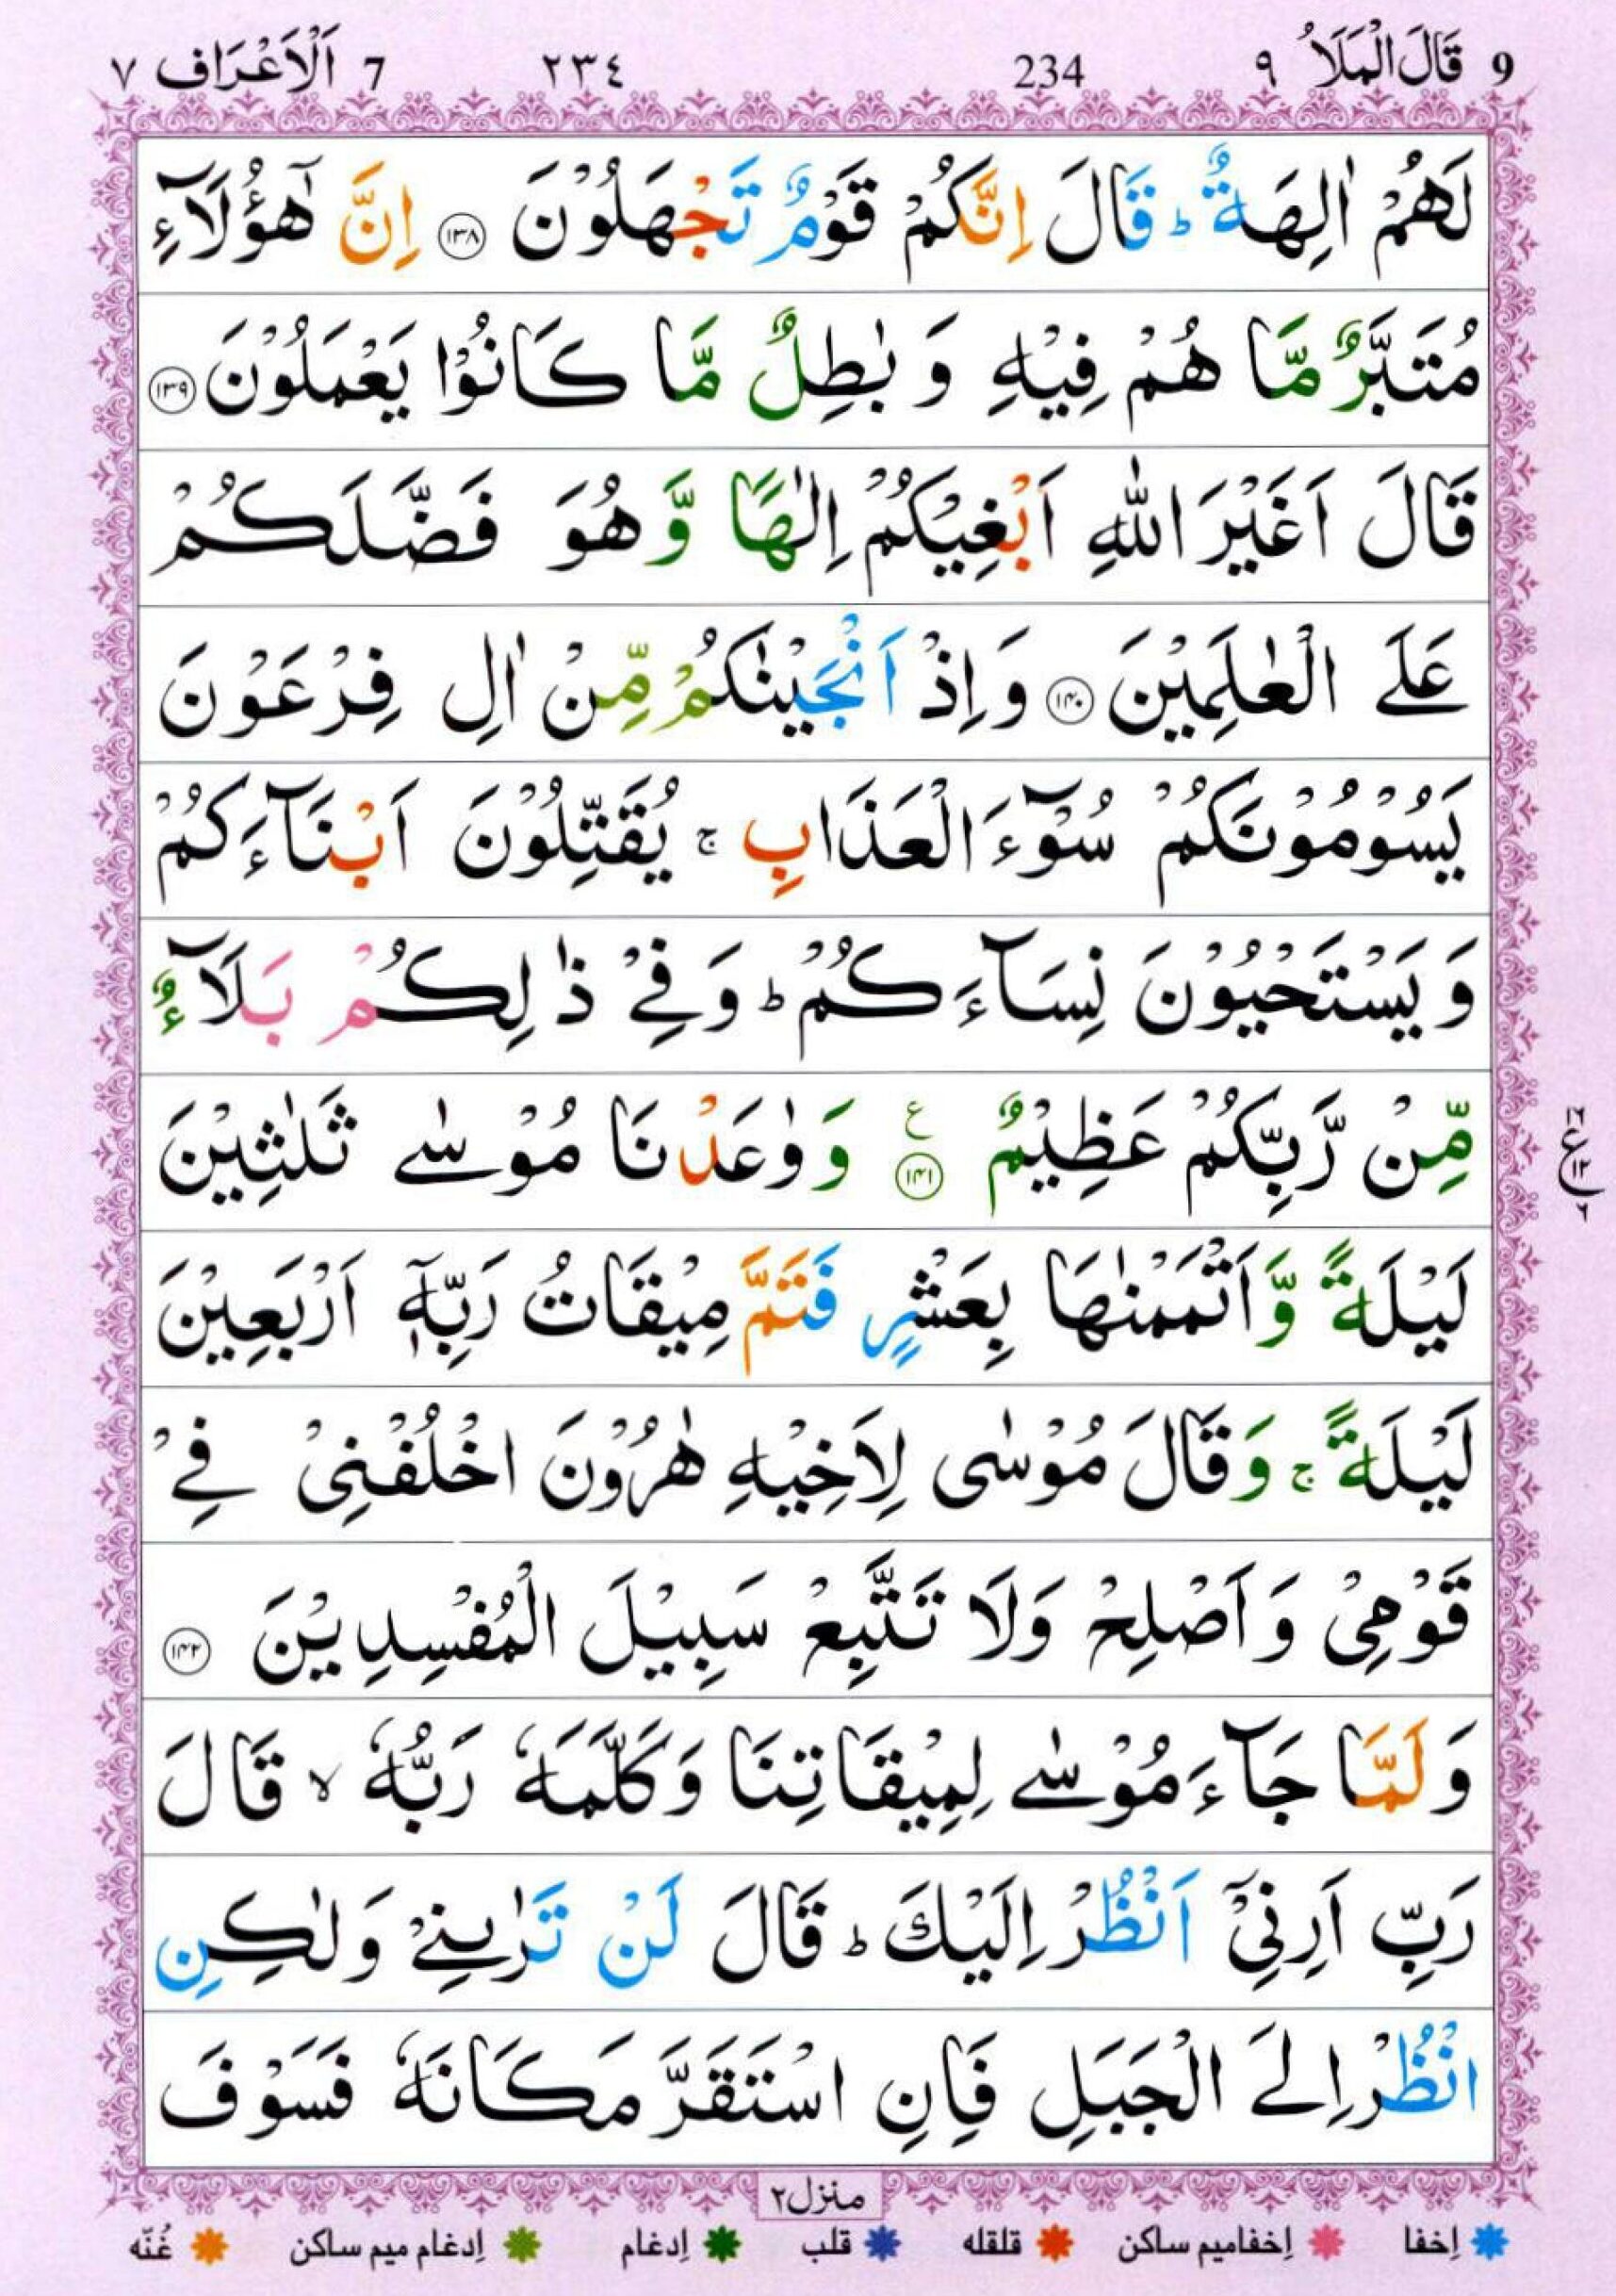 9 قَالَ الْمَلَاُ ٩ 234 ٢٣٤ 7 اَلْاَعْرَاف ٧
لَهُمْ اٰلِهَةٌ ؕ قَالَ اِنَّكُمْ قَوْمٌ تَجْهَلُوْنَ ﴿۱۳۸﴾ اِنَّ هٰٓؤُلَآءِ
مُتَبَّرٌ مَّا هُمْ فِيْهِ وَ بٰطِلٌ مَّا كَانُوْا يَعْمَلُوْنَ ﴿۱۳۹﴾
قَالَ اَغَيْرَ اللّٰهِ اَبْغِيْكُمْ اِلٰهًا وَّ هُوَ فَضَّلَكُمْ
عَلَى الْعٰلَمِيْنَ ﴿۱۴۰﴾ وَ اِذْ اَنْجَيْنٰكُمْ مِّنْ اٰلِ فِرْعَوْنَ
يَسُوْمُوْنَكُمْ سُوْٓءَ الْعَذَابِ ۚ يُقَتِّلُوْنَ اَبْنَآءَكُمْ
وَ يَسْتَحْيُوْنَ نِسَآءَكُمْ ؕ وَ فِيْ ذٰلِكُمْ بَلَآءٌ
مِّنْ رَّبِّكُمْ عَظِيْمٌ ﴿۱۴۱﴾ ع وَ وٰعَدْنَا مُوْسٰى ثَلٰثِيْنَ
ع ١٦ ١٢ ٦
لَيْلَةً وَّ اَتْمَمْنٰهَا بِعَشْرٍ فَتَمَّ مِيْقَاتُ رَبِّهٖٓ اَرْبَعِيْنَ
لَيْلَةً ۚ وَ قَالَ مُوْسٰى لِاَخِيْهِ هٰرُوْنَ اخْلُفْنِيْ فِيْ
قَوْمِيْ وَ اَصْلِحْ وَلَا تَتَّبِعْ سَبِيْلَ الْمُفْسِدِيْنَ ﴿۱۴۲﴾
وَ لَمَّا جَآءَ مُوْسٰى لِمِيْقَاتِنَا وَ كَلَّمَهٗ رَبُّهٗ ۙ قَالَ
رَبِّ اَرِنِيْٓ اَنْظُرْ اِلَيْكَ ؕ قَالَ لَنْ تَرٰىنِيْ وَلٰكِنِ
انْظُرْ اِلَى الْجَبَلِ فَاِنِ اسْتَقَرَّ مَكَانَهٗ فَسَوْفَ
منزل ٢
إخفا إخفاميم ساكن قلقله قلب إدغام إدغام ميم ساكن غُنّه